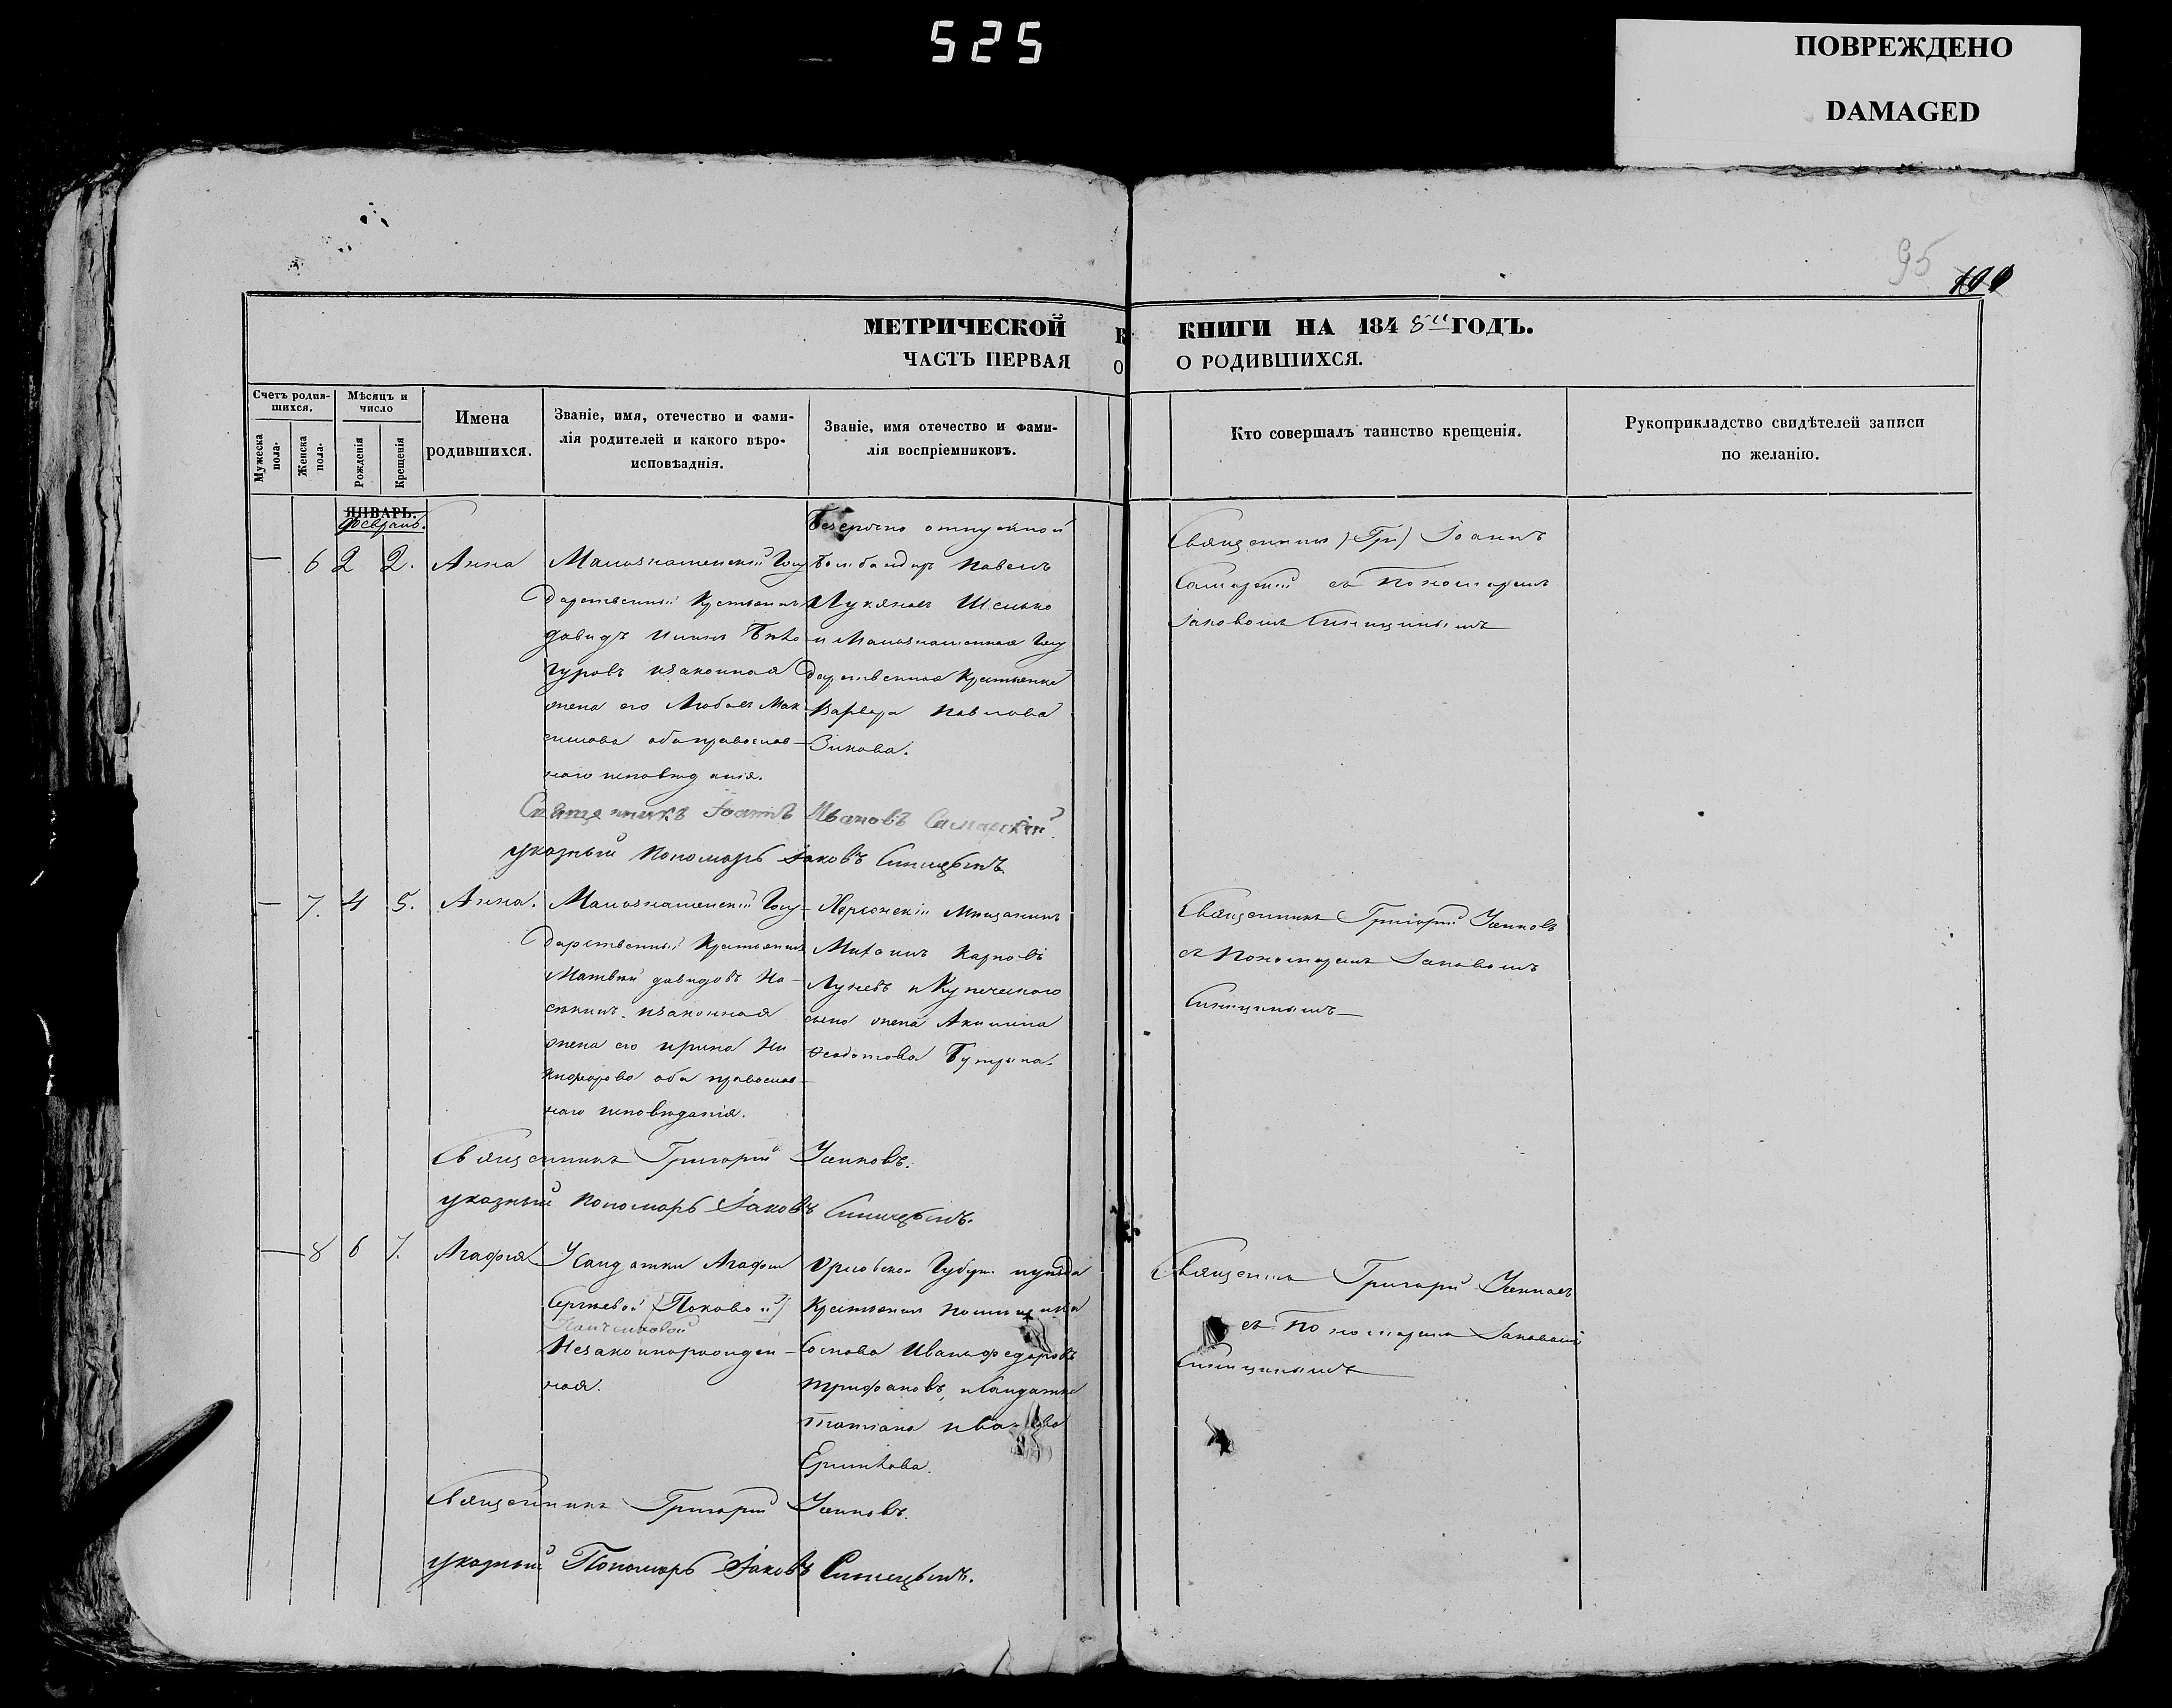 525
ПОВРЕЖДЕНО
DAMAGED
95
МЕТРИЧЕСКОЙ
ЧАСТЬ ПЕРВАЯ
КНИГИ НА 184 ГОДЪ.
О РОДИВШИХСЯ.
Счетъ родив-
шихся.
Мужеска
пола.
Женска
пола.
Мѣсяцъ и
число
Рожденія
Крещенія
Имена
родившихся.
Званіе, имя, отечество и фами-
лія родителей и какого вѣро-
исповѣаднія.
Званіе, имя отечество и фами-
лія воспріемниковъ.
Кто совершалъ таинство крещенія.
Рукоприкладство свидѣтелей записи
по желанію.
ЯНВАРЬ.
Февраль.
— 6 2 2. Анна
Малознаменскій Госу
дарственный Крстьянинъ
давидъ
законная
жена его Любовь Мак
симова оба православ-
наго исповѣданія.
отпускной
Бомбандиръ Павелъ
и Малознаменская Госу
дарственная Крстьянка
Варвара Павлова
Зикова.
Священникъ (Гри) Іоаннъ
Самарскій съ Пономаремъ
Іаковомъ Синицинымъ
Священникъ Іоаннъ Ивановъ Самарскій.
указный Пономарь Іаковъ Синицынъ.
— 7. 4 5. Анна.
Малознаменскій Госу-
дарственный Крстьянинъ
Матвѣй давидовъ
законная
жена его ирина Ни
кифорова оба православ-
наго исповѣданія.
Херсонскій Мѣщанинъ
Михаилъ Карповъ
и Купеческаго
сына жена Акилина
Ѳедотова
Священникъ Григорій
съ Пономаремъ Іаковомъ
Синицинымъ
Священникъ Григорій
указный Пономарь Іаковъ Синицынъ.
— 8 6 7. Агафія
У Солдатки Агафіи
Сергѣевой
Незаконнорожден-
ная.
Орловской Губерн.
Крстьянинъ помѣщика
Иванъ Федоровъ
Трифановъ, и Солдатка
Татіана
Священникъ Григорій
съ Пономаремъ Іаковомъ
Синицинымъ
Священникъ Григорій
указный Пономарь Іаковъ Синицынъ.